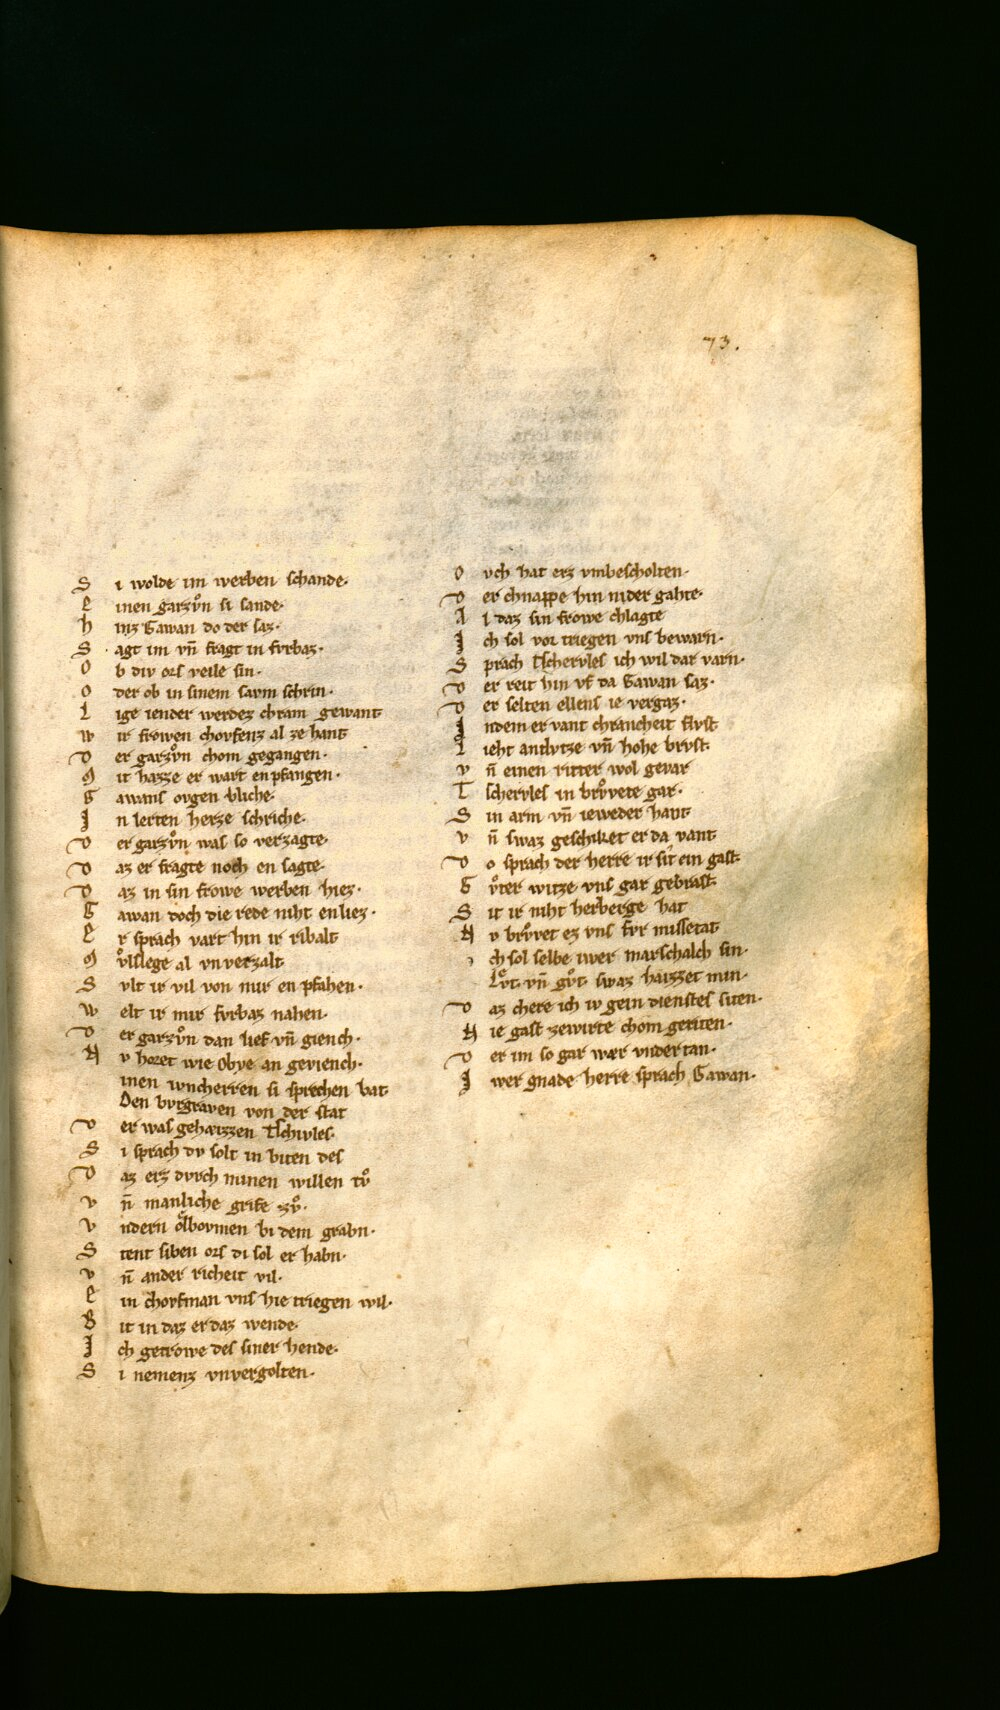 73.
S i wolde im werben schande·
E inen garzvͦn si sande·
h inz Gawan do der saz·
S agt im vn̄ fragt in fvrbaz·
O b div ors veile sin·
O der ob in sinem savm schrin·
L ige iender werdez chram gewant
W ir frowen chovfenz al ze hant
D er garzvͦn chom gegangen·
M it hazze er wart enpfangen·
G awans ovgen bliche·
J n lerten herze schriche·
D er garzvͦn was so verzagte
D az er fragte noch en sagte·
D az in sin frowe werben hiez·
G awan doch die rede niht enliez·
E r sprach vart hin ir ribalt
M vͦlslege al vnverzalt
S vlt ir vil von mir enpfahen·
W elt ir mir fvrbaz nahen·
D er garzvͦn dan lief vn̄ giench·
N v horet wie Obye an geviench·
inen ivncherren si sprechen bat
Den bvrgraven von der stat
D er was gehaizzen Tschivles·
S i sprach dv solt in biten des
D az erz dvrch minen willen tvͦ
V n̄ manliche grife zvͦ·
V ndern oͤlbovmen bi dem grabn·
S tent siben ors di sol er habn·
V n̄ ander richeit vil·
E in chovfman vns hie triegen wil·
B it in daz er daz wende·
J ch getrowe des siner hende·
S i nemenz vnvergolten·
O vch hat erz vmbescholten·
D er chnappe hin nider gahte·
A l daz sin frowe chlagte
J ch sol vor triegen vns bewarn·
S prach Tschervles ich wil dar varn·
D er reit hin vf da Gawan saz·
D er selten ellens ie vergaz·
J ndem er vant chrancheit flvst
L ieht antlvtze vn̄ hohe brvst·
V n̄ einen ritter wol gevar
T schervles in brvͦvete gar·
S in arm vn̄ ieweder hant
V n̄ swaz geschiket er da vant
D o sprach der herre ir sit ein gast·
G vͦter witze vns gar gebrast·
S it ir niht herberge hat
N v brvͦvet ez vns fvr missetat
J ch sol selbe iwer marschalch sin·
Lvͤt· vn̄ gvͦt· swaz haizzet min·
D az chere ich iv gein dienstes siten·
N ie gast zewirte chom geriten·
D er im so gar wær vndertan·
J wer gnade herre sprach Gawan·